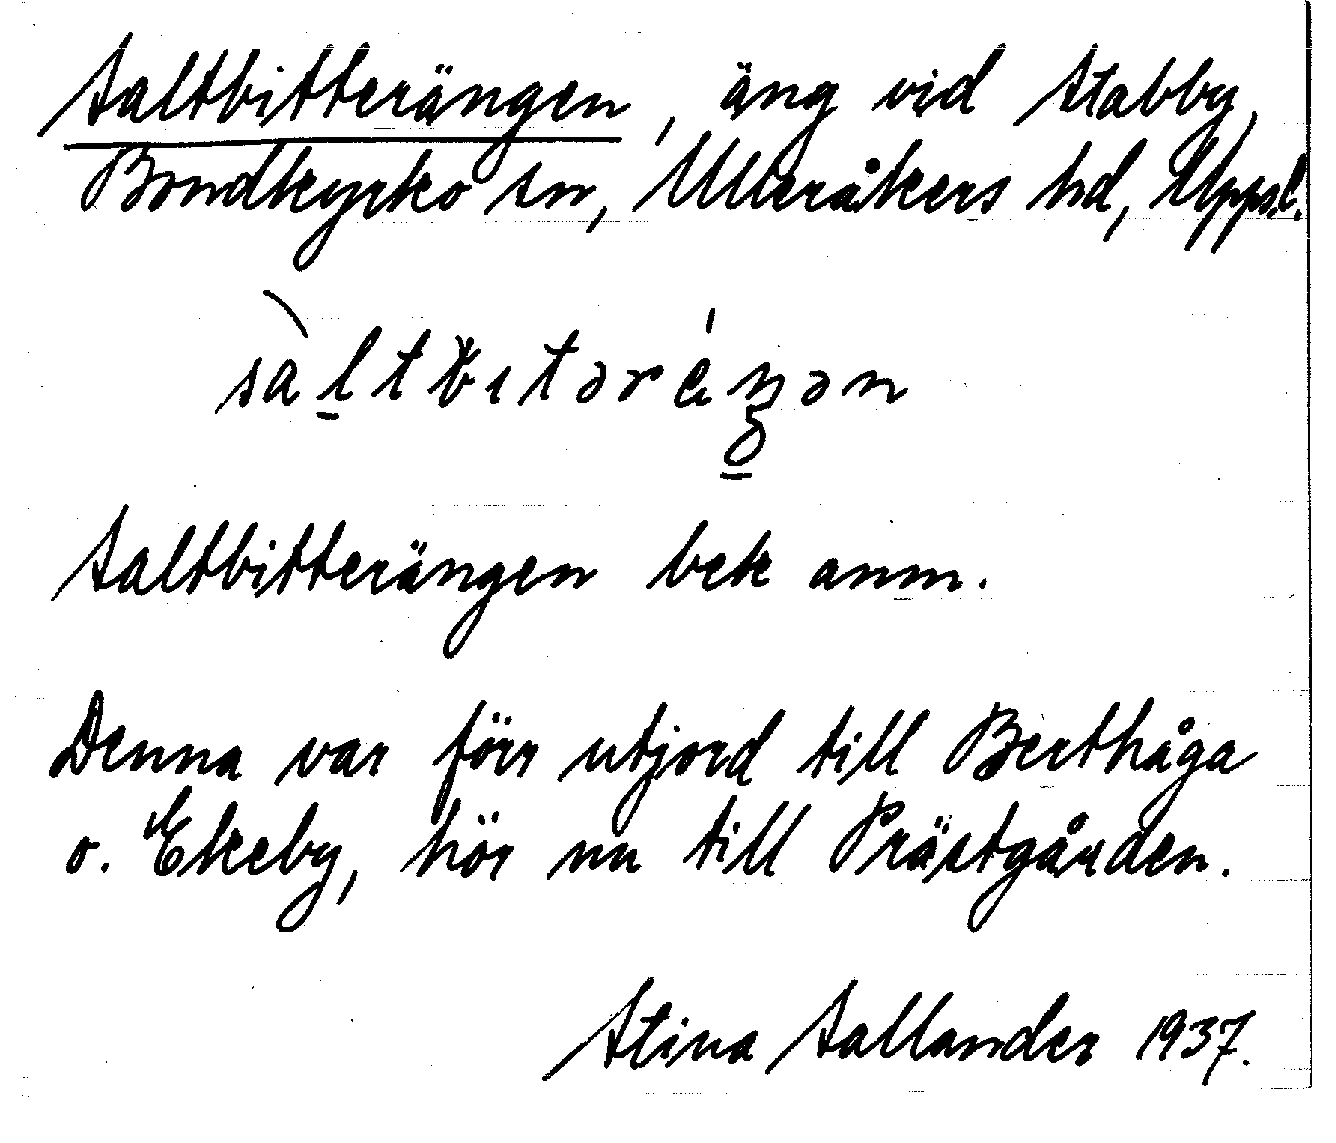 Saltbitterängen, äng vid Stabby,
Bondkyrko sn, Ulleråkers hd, Uppsl.
sàltbιtəréŋən
Saltbitterängen bek anm.
Denna var förr utjord till Berthåga
o. Ekeby, hör nu till Prästgården.
Stina Sallander 1937.